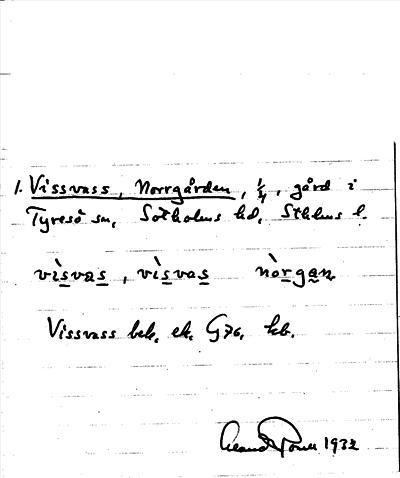 1. Vissvass, Norrgården, 1/4, gård i
Tyresö sn, Sotholms hd, Sthlms l.
vìsvas, vìsvas nòrgan
Vissvass bek. ek. G76, kb.
1932